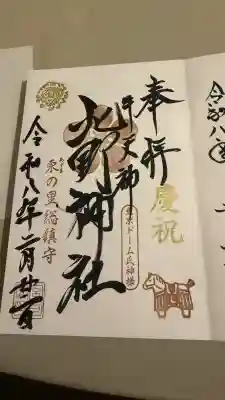 奉拝
慶祝
牛天神
東京ドーム氏神様
北野神社
東の里総鎮守
令和八年二月廿一日
令和八